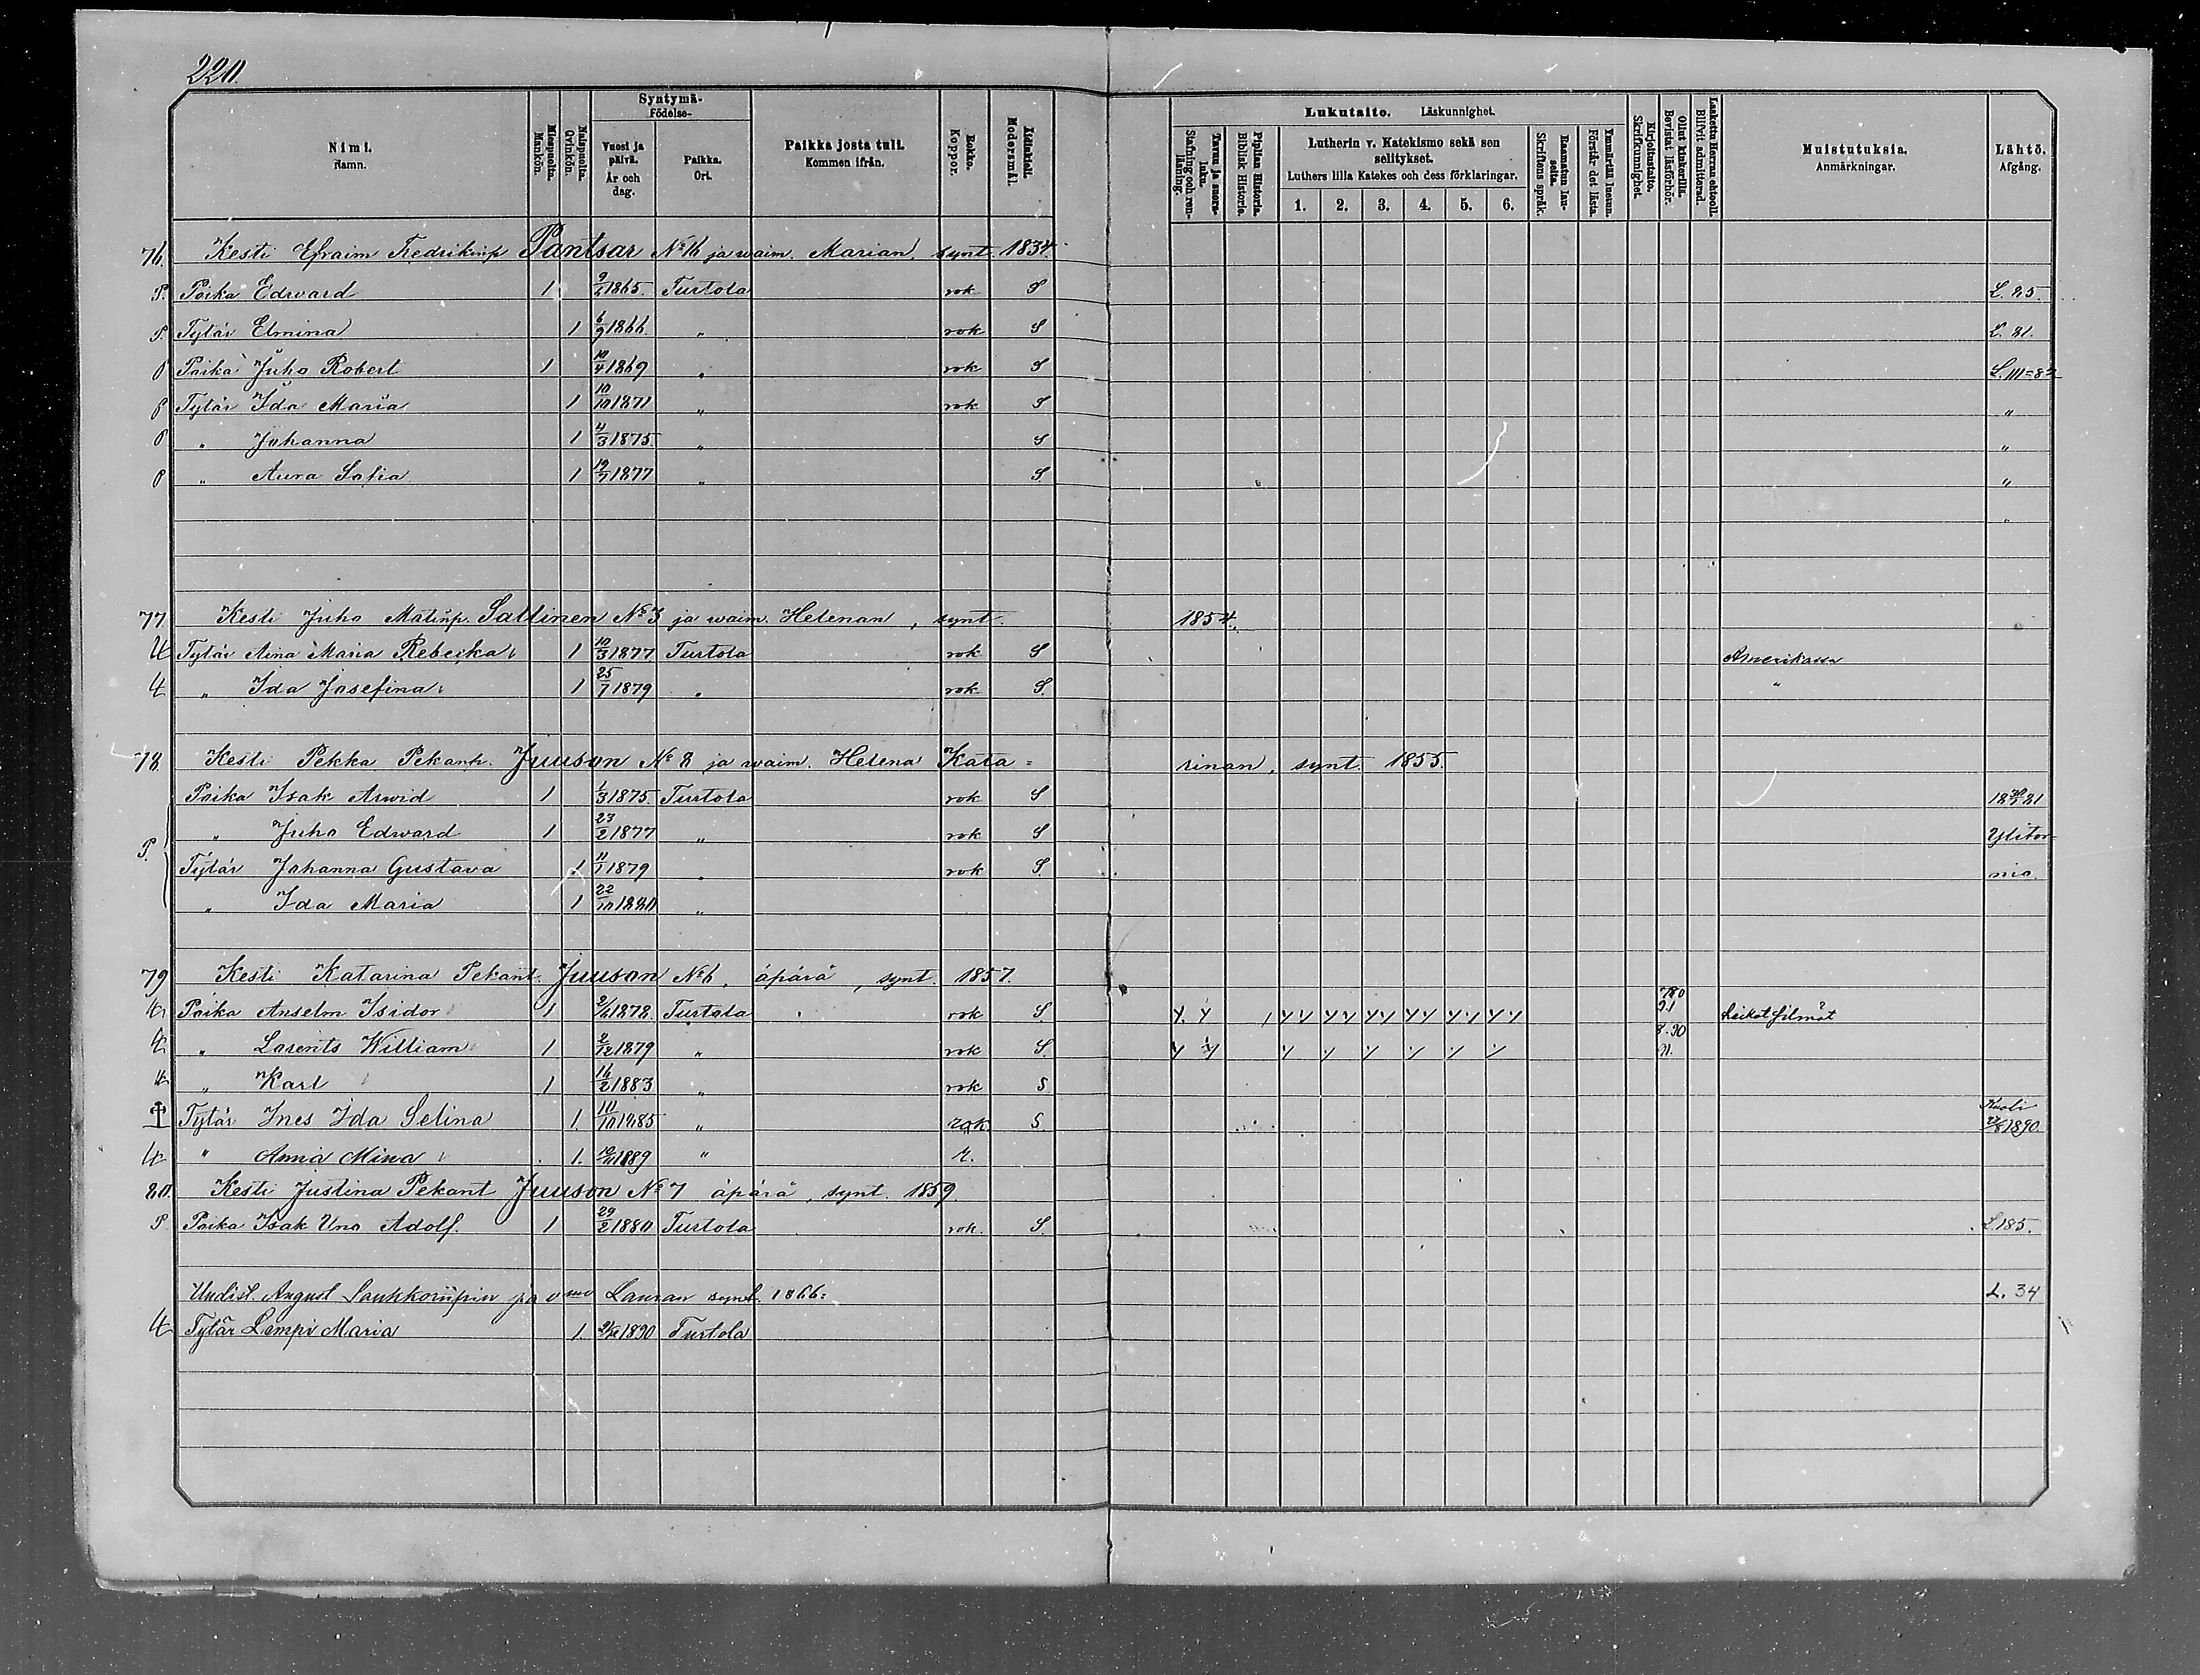 220.
Nimi. Namn. Miespuolia. Mankön. Naispuolia. Qvinkön. Syntymä- Födelse- Vuosi ja päivä. År och dag. Paikka. Ort. Paikka josta tuli. Kommen ifrån. Rokko. Koppor. Äidinkieli. Modersmål. Lukutaito. Läskunnighet. Tavuu ja suora- luku. Stafning och ren- läsning. Piplian Historia. Biblisk Historia. Lutherin v. Katekismo sekä sen selitykset. Luthers lilla Katekes och dess förklaringar. 1. 2. 3. 4. 5. 6. Raamatun lau- seita. Skriftens språk. Ymmärtää luetun. Förstår det lästa. Kirjoitustaito. Skrifkunnighet. Ollut kinkerillä. Bevistat läsförhör. Laskettu Herran ehtooll. Blifvit admitterad. Muistutuksia. Anmärkningar. Lähtö. Afgång.
76. Kesti Efraim Fredrikinp Pantsar No 16 ja waim. Marian, synt. 1834
P. Poika Edward 1 9/2 1865. Turtola rok S L. 25.
P. Tytär Elmina 1 6/9 1866 " rok S L. 21.
P Poika Juho Robert 1 10/4 1869 " rok S L. III=82
P Tytär Ida Maria 1 10/10 1871 " rok S "
P " Johanna 1 4/3 1875. " S "
P " Aura Sofia 1 19/7 1877 " S "
"
77. Kesti Juho Matinp. Sattinen No 3 ja waim. Helenan, synt. 1854.
U Tytär Aina Maria Rebecka 1 10/3 1877 Turtola rok S Amerikassa
U " Ida Josefina 1 25/7 1879 " rok S. "
78. Kesti Pekka Pekanp. Juuson No 8 ja waim. Helena Kata= rinan, synt. 1855.
Poika Isak Arwid 1 1/3 1875. Turtola rok S
" Juho Edward 1 23/2 1877 " rok S Ylitor-
P. Tytär Johanna Gustava 1 11/1 1879 " rok S. nio.
" Ida Maria 1 22/10 1880 "
79 Kesti Katarina Pekant. Juuson No 6, äpärä, synt. 1857.
U Poika Anselm Isidor 1 2/6 1878. Turtola rok S.
U " Larents William 1 2/12 1879 " rok S.
U " Karl 1 16/2 1883 " rok S
Tytär Ines Ida Selina 1. 10/10 1885 " rok S. Kuoli 1890
U " Anna Mina 1. 1889 " r.
80. Kesti Justina Pekant Juuson No 7 äpärä, synt. 1859.
P Poika Isak Uno Adolf. 1 29/2 1880 Turtola rok. S. L. 185.
Uudist. August Lauhkoriipin ja vmo Lauran synt. 1866: L. 34
U Tytär Lempi Maria 1. 1890 Turtola